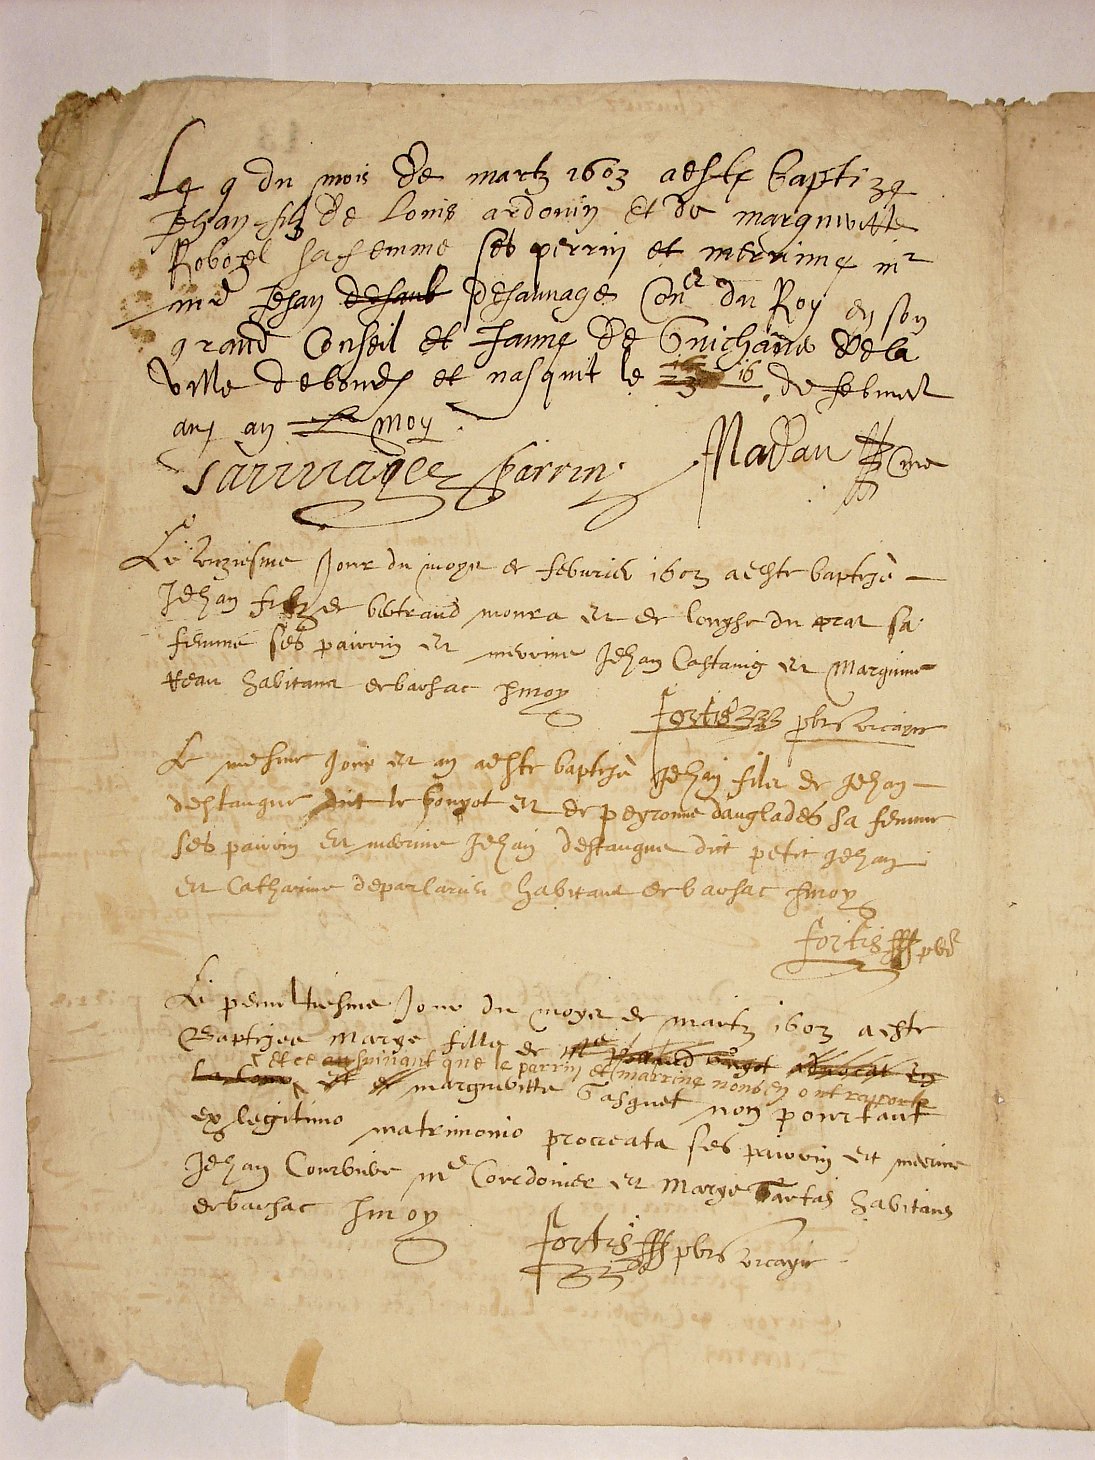 Le 9 du mois de martz 1603 a este baptize
Jehan filz de Louis ardouin et de margueritte
Robogel sa femme ses perrin et merrine mr
me Jehan desaub desauuages Coner du Roy en son
grand Conseil et Janne de Guichaneres de la
ville de et nasquit le 16 de februier
an moy
Sauuages parrin Nadau
Le unziesme Jour du moys de feburier 1603 a este baptizé
Jehan filz de bertrand moura et de longhe du prat sa
femme ses pairrin et merrine Jehan Castaing et Margueritte
habitans de barsac p moy
fortis pbre vicayre
Le mesme Jour et an a este baptizé Jehan filz de Jehan
destangue dict le bougot et de peyronne danglades sa femme
ses pairrin et merrine Jehan destangue dict petit Jehan
et Catharine deparlarieu habitans de barsac p moy
fortis pbre
Le penultiesme Jour du moys de martz 1603 a este
Baptizee Marye fille de me advocat en
la Cour et ce au suivant que le perrin et marrine nous en ont raporte
et de margueritte Gasquet non pourtant
ex legitimo matrimonio procreata ses pairrin et merrine
Jehan Courbiere me Cordonier et Marye Tartas habitans
de barsac p moy
fortis pbre vicayre